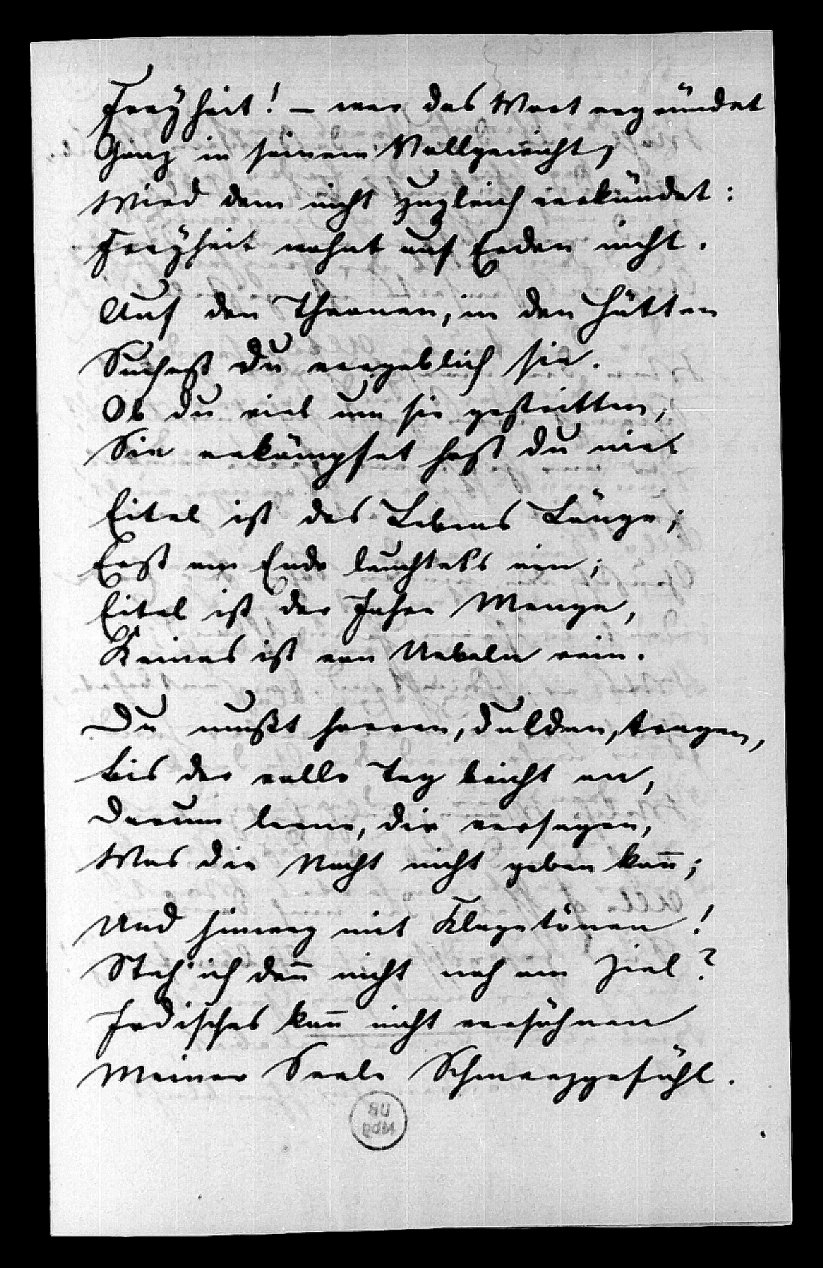 Freyheit! – wer das Wort ergründet
Ganz in seinem Vollgewicht,
Wird dem nicht zugleich verkündet:
Freyheit wohnt auf Erden nicht.
Auf den Thronen, in den Hütten
Suchest du vergeblich sie.
Ob du viel um sie gestritten,
Sie erkämpfet hast du nie.
Eitel ist des Lebens Länge;
Erst am Ende leuchtet's ein;
Eitel ist der Jahre Menge,
Keines ist von Uebeln rein.
Du mußt harren, dulden, tragen,
bis der volle Tag bricht an,
Darum lerne, dir versagen,
Was die Nacht nicht geben kan̄;
Und hinweg mit Klagetönen!
Steh' ich den̄ nicht nah am Ziel?
Irdisches kan̄ nicht versöhnen
Meiner Seele Schmerzgefühl.
UB
Mbg